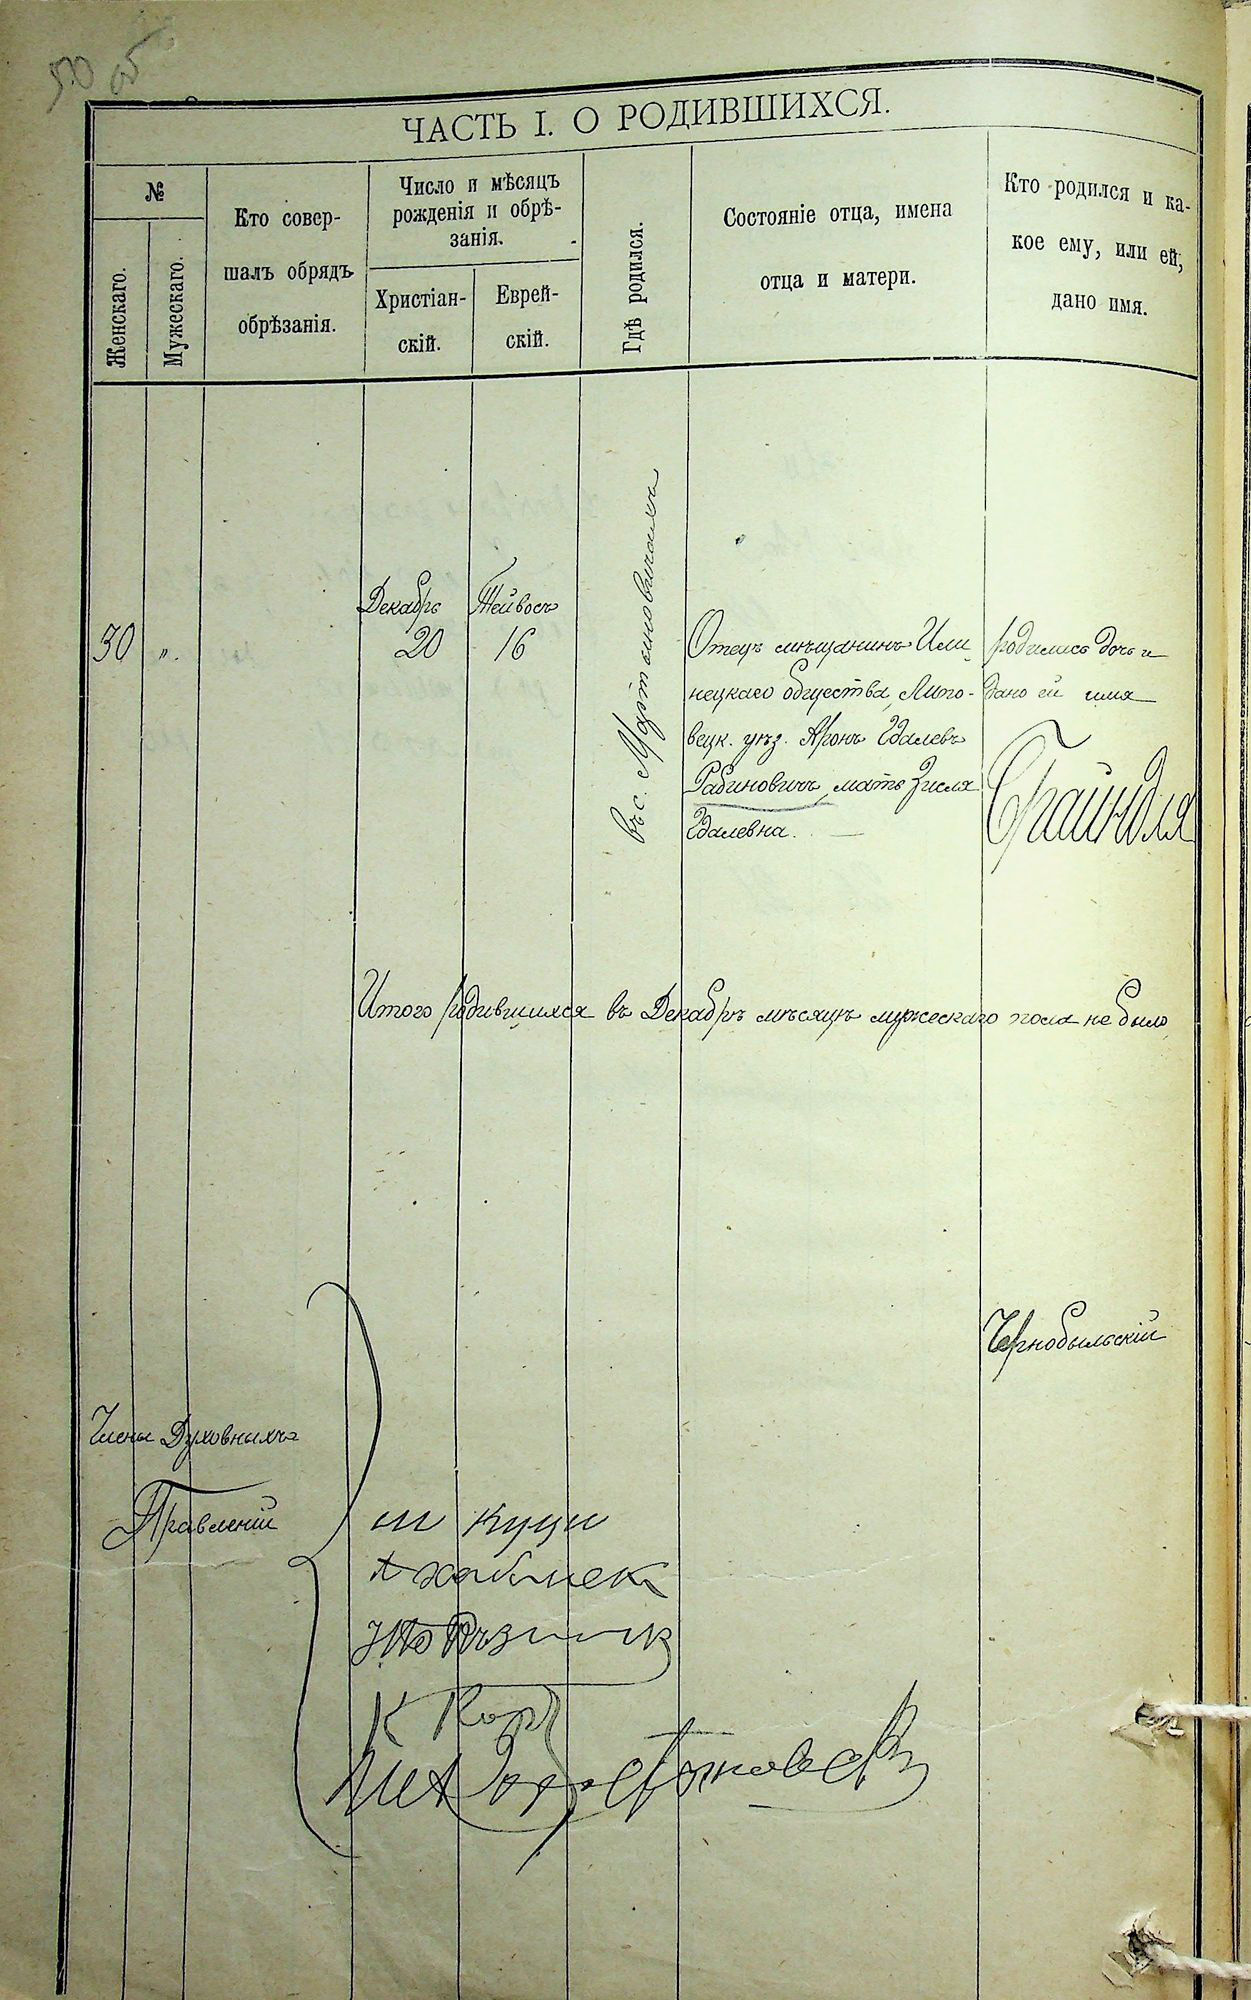 50 об
ЧАСТЬ I. О РОДИВШИХСЯ.
№
Женскаго.
Мужескаго.
Кто совер-
шалъ обрядъ
обрѣзанія.
Число и мѣсяцъ
рожденія и обрѣ-
занія.
Христіан-
скій.
Еврей-
скій.
Гдѣ родился.
Состояніе отца, имена
отца и матери.
Кто родился и ка-
кое ему, или ей,
дано имя.
Декабрь
Тейвосъ
30 „ 20 16
въ с. Мартыновичахъ
Отецъ мѣщанинъ Или-
нецкаго общества, Липо-
вецк. уѣз. Аронъ Гдалевъ
Рабиновичъ, мать Зисля
Гдалевна.
родилась дочь и
дано ей имя
Брайндля
Итого родившихся въ Декабрѣ мѣсяцѣ мужескаго пола не было
Чернобыльскій
Члены Духовныхъ
Правленій
Ш Куци